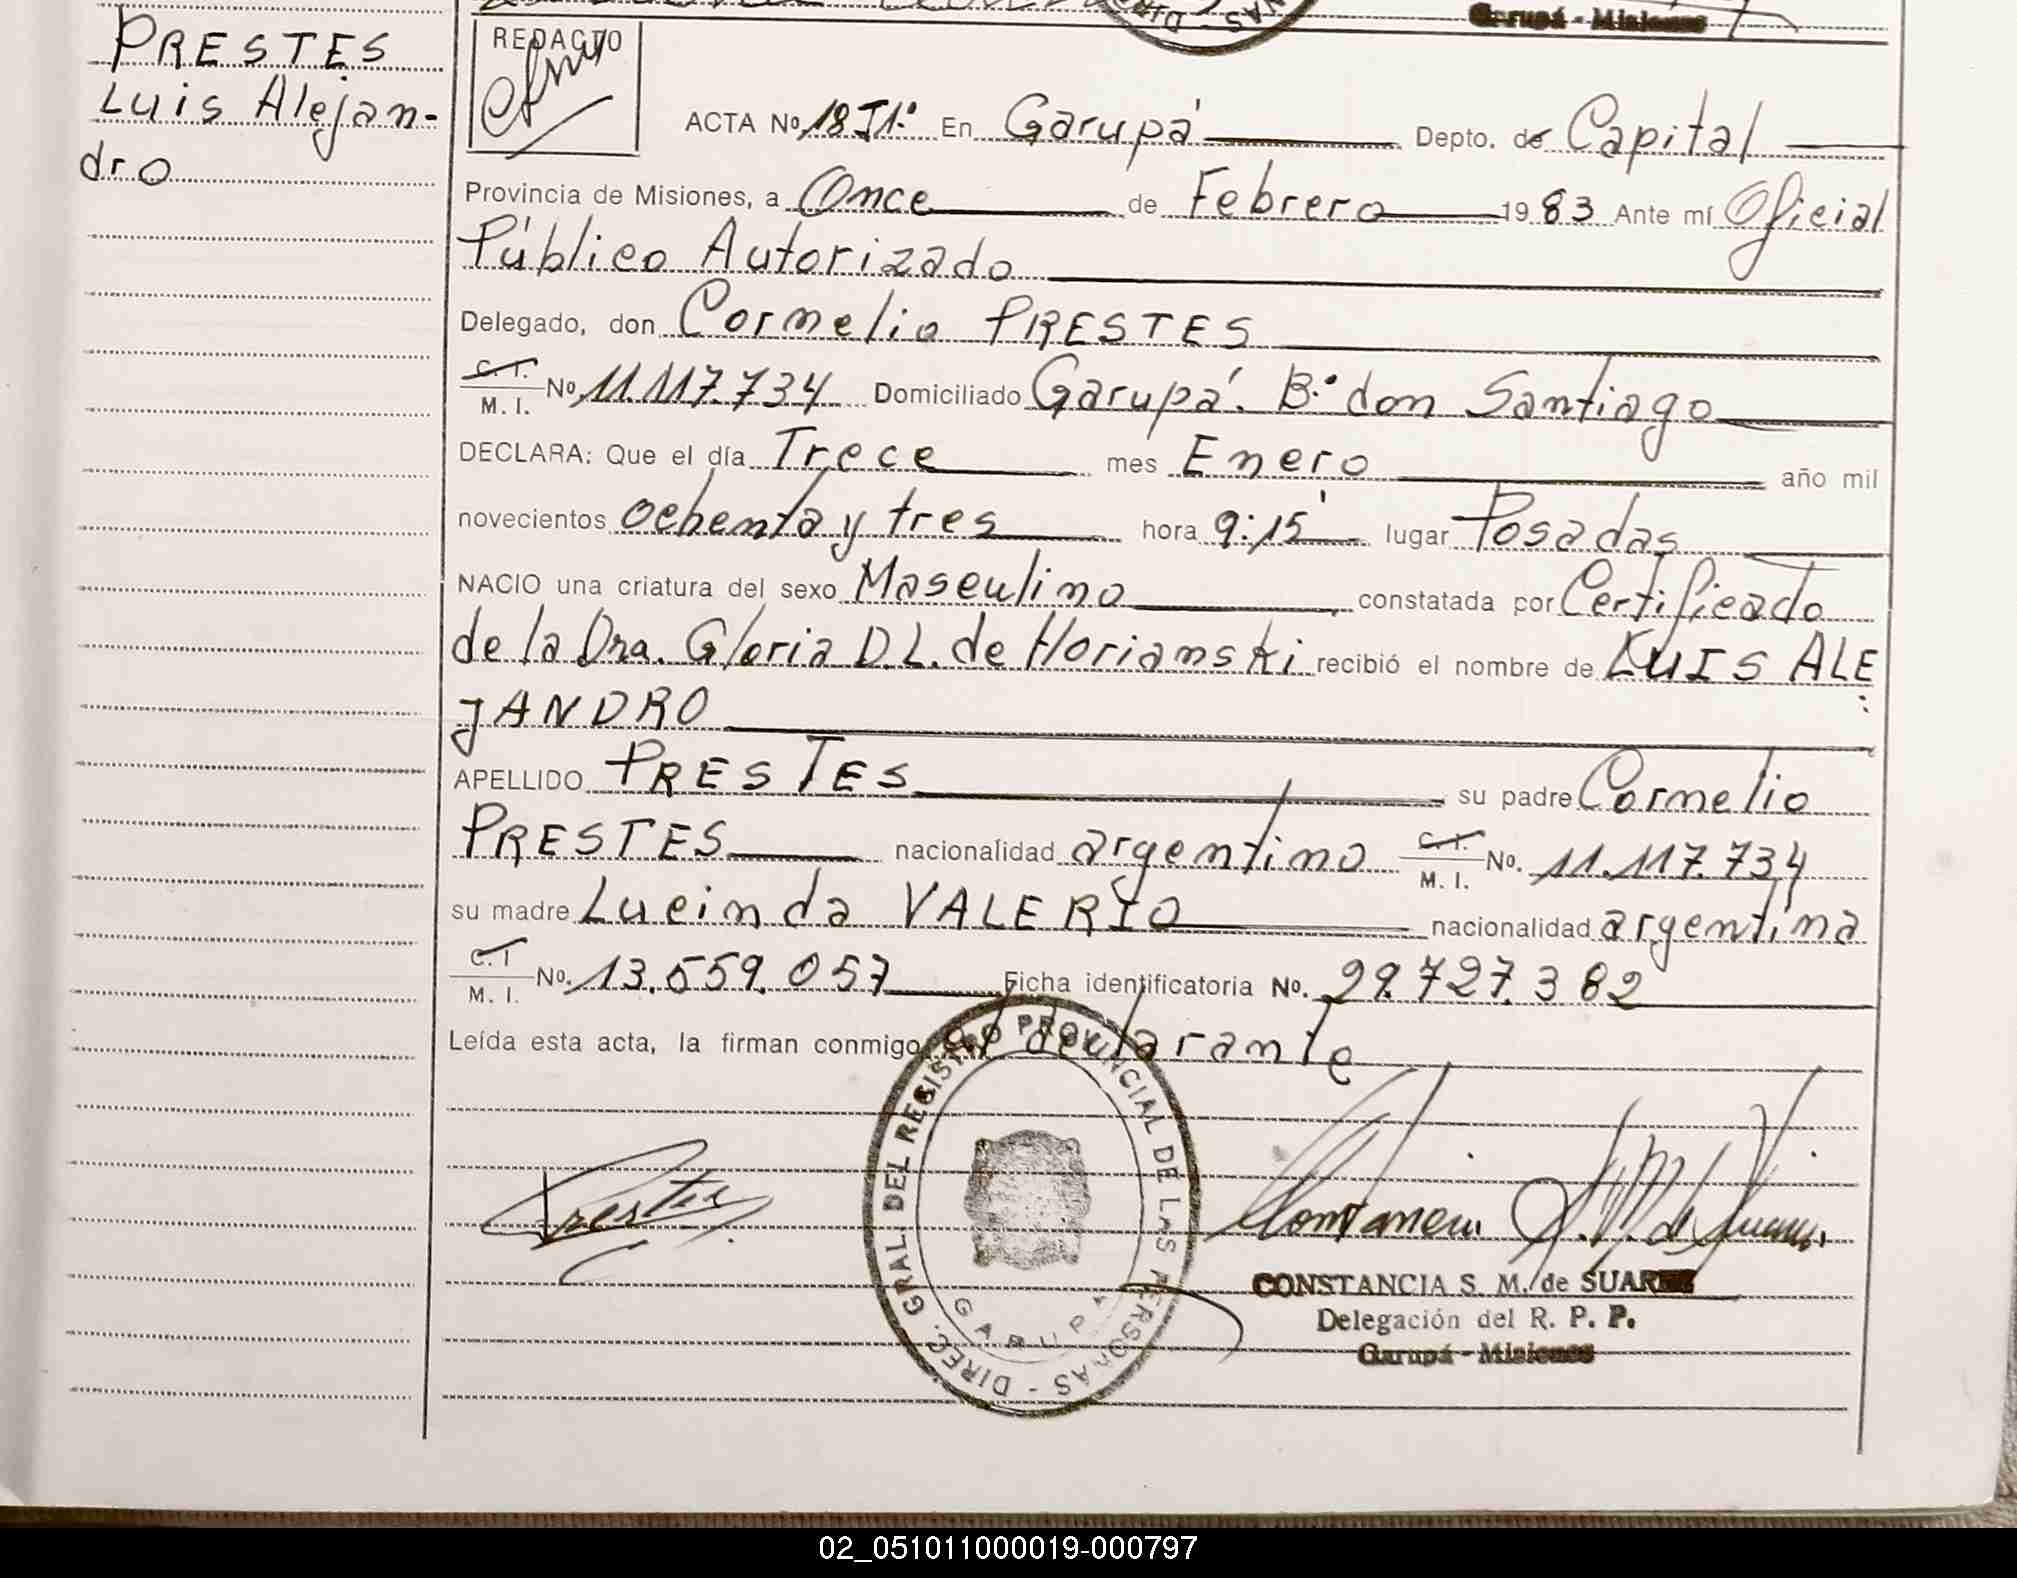 Garupá - Misiones
PRESTES
Luis Alejan-
dro
REDACTO
ACTA No 18 T1º En Garupá Depto. de Capital
Provincia de Misiones, a Once de Febrero 1983 Ante mí Oficial
Público Autorizado
Delegado, don Cornelio PRESTES
C. I. M. I. No 11.117.734 Domiciliado Garupá. Bº don Santiago
DECLARA: Que el día Trece mes Enero año mil
novecientos ochenta y tres hora 9:15 lugar Posadas
NACIO una criatura del sexo Masculino constatada por Certificado
de la Dra. Gloria D.L. de Horianski recibió el nombre de LUIS ALE
JANDRO
APELLIDO PRESTES su padre Cornelio
PRESTES nacionalidad argentino C. I. M. I. No. 11.117.734
su madre Lucinda VALERIO nacionalidad argentina
C. I M. I. No. 13.559.057 Ficha identificatoria No. 29.727.382
Leída esta acta, la firman conmigo el declarante
DIREC. GRAL. DEL REGISTRO PROVINCIAL DE LAS PERSONAS -
GARUPA
Prestes
CONSTANCIA S. M. de SUAREZ
Delegación del R. P. P.
Garupá - Misiones
02_051011000019-000797